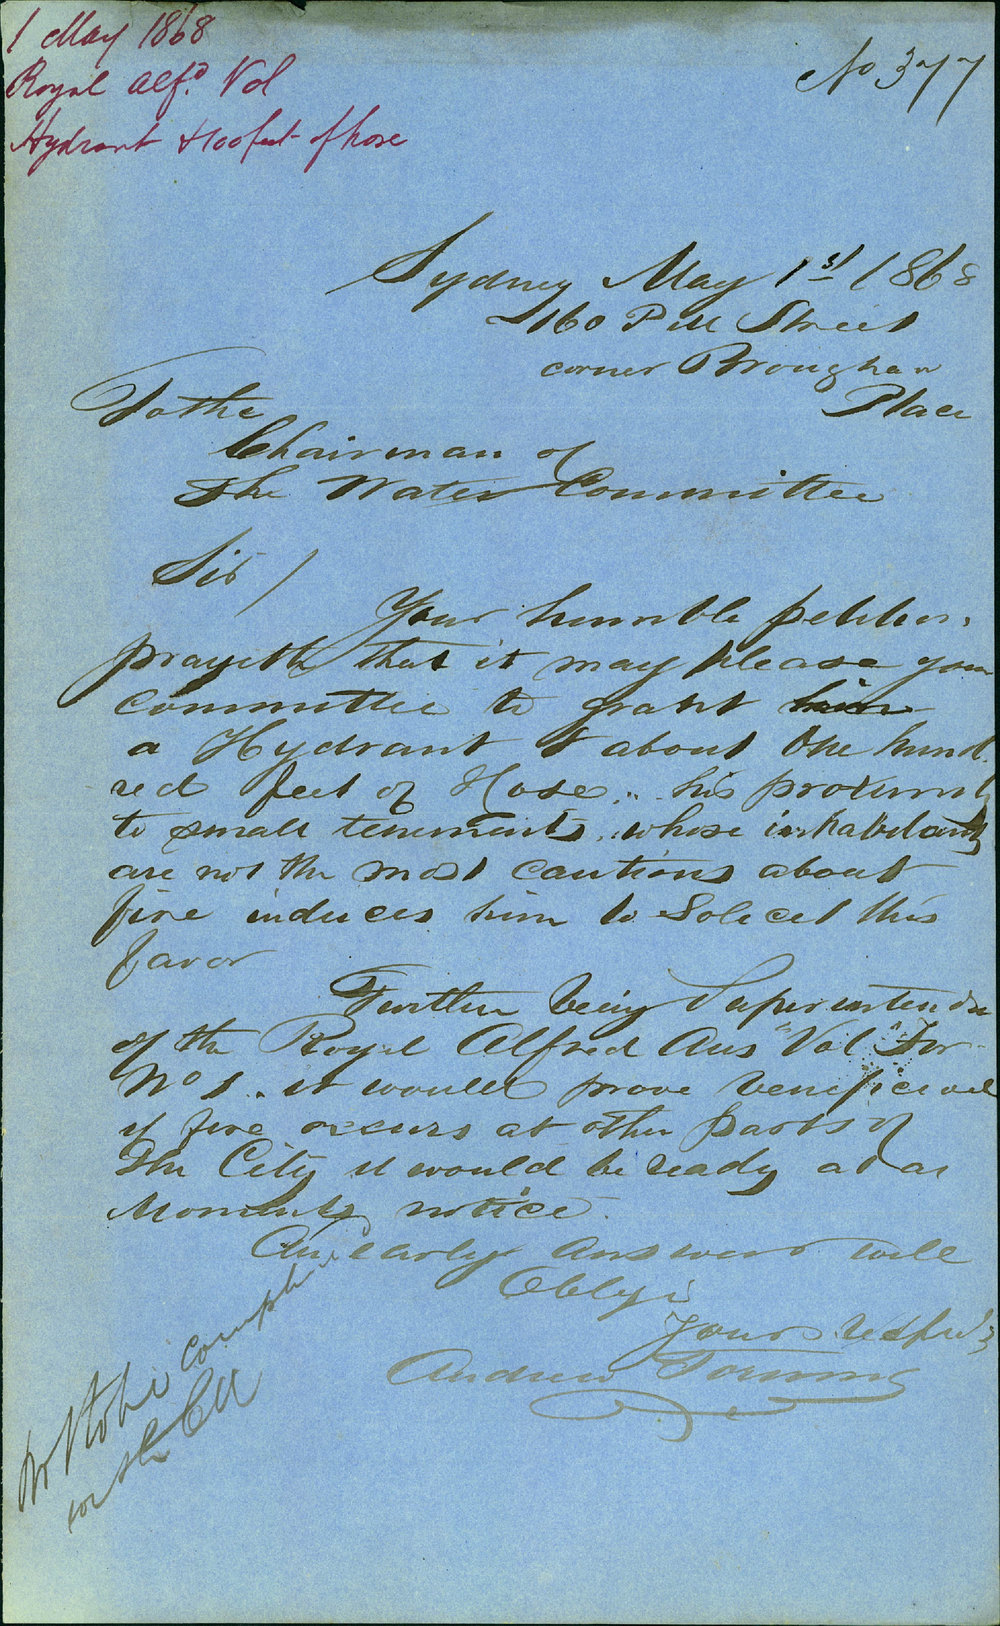 1 May 1868
Royal Alfd. Vol
Hydrant & 100 feet of hose
No 377
Sydney May 1st 1868
160 Pitt Street
corner Brougham
Place
To the
Chairman of
The Water Committee
Sir /
Your humble petitnr,
prayeth that it may please your
Committee to grant him
a Hydrant & about One hund
red feet of Hose, his proximity
to small tenements, whose inhabitants
are not the most cautious about
fire induces him to Solicet this
favor
Further being Superintendn
of the Royal Alfred Aus "Vol" Fir
No 1. it would prove benificial
if fire occurs at other parts of
The City it would be ready at a
Moments notice.
An early Answer will
Oblige
Yours respfully
Andrew Torning
Not to be complied
with